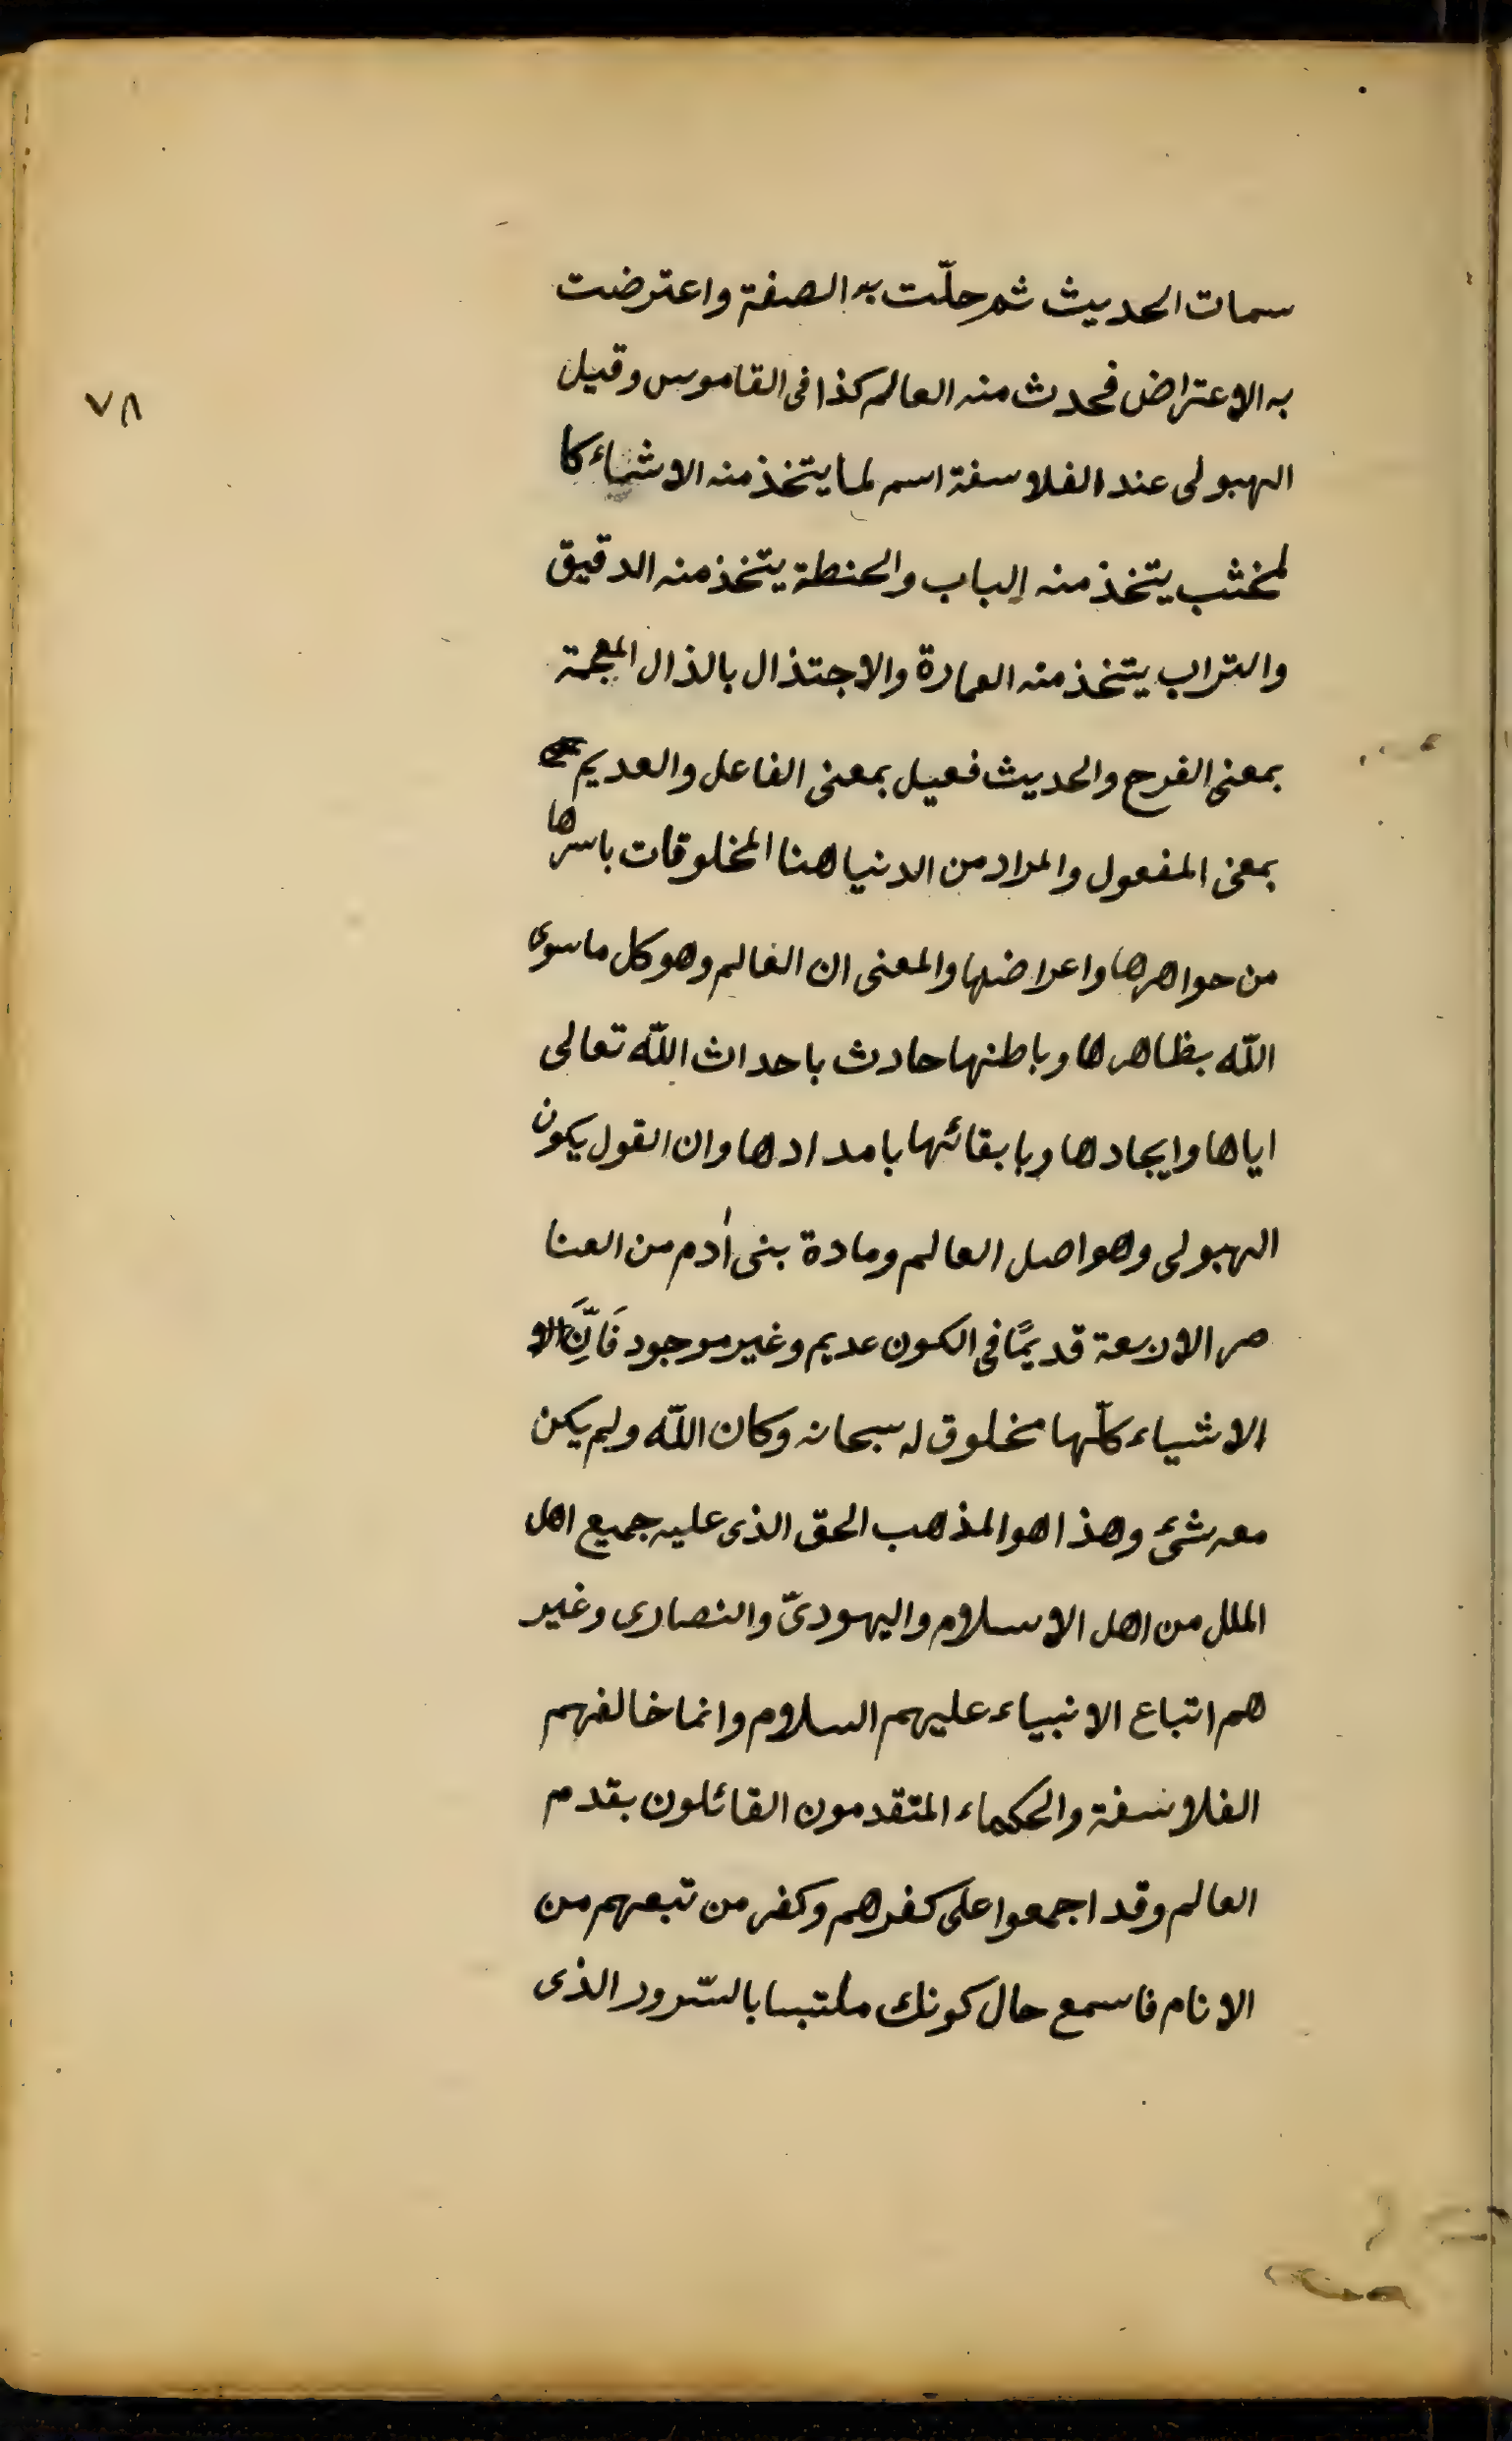 سمات الحديث ثم حلّت به الصفة واعترضت
به الاعتراض فحدث منه العالم كذا فى القاموس وقيل
٧٨
الهيولى عند الفلاسفة اسم لما يتخذ منه الاشياء كا
لخشب يتخذ منه الباب والحنطة يتخذ منه الدقيق
والتراب يتخذ منه العمارة والاجتذال بالذال المعجمة
بمعنى الفرح والحديث فعيل بمعنى الفاعل والعديم
بمعنى المفعول والمراد من الدنيا هنا المخلوقات باسرها
من جواهرها واعراضها والمعنى ان العالم وهو كل ما سوى
اللّه بظاهرها وباطنها حادث باحداث اللّه تعالى
اياها وايجادها وبابقائها بامدادها وان القول يكون
الهيولى وهو اصل العالم ومادة بنى اٰدم من العنا
صر الاربعة قديمًا فى الكون عديم وغير موجود فَاِنَّ
الاشياء كلّها مخلوق له سبحانه وكان اللّه ولم يكن
معه شئ وهذا هو المذهب الحق الذى عليه جميع اهل
الملل من اهل الاسلام واليهودىّ والنصارى وغير
هم اتباع الانبياء عليهم السلام وانما خالفهم
الفلاسفة والحكماء المتقدمون القائلون بقدم
العالم وقد اجمعوا على كفرهم وكفر من تبعهم من
الانام فاسمع حال كونك ملتبسا بالسّرور الذى